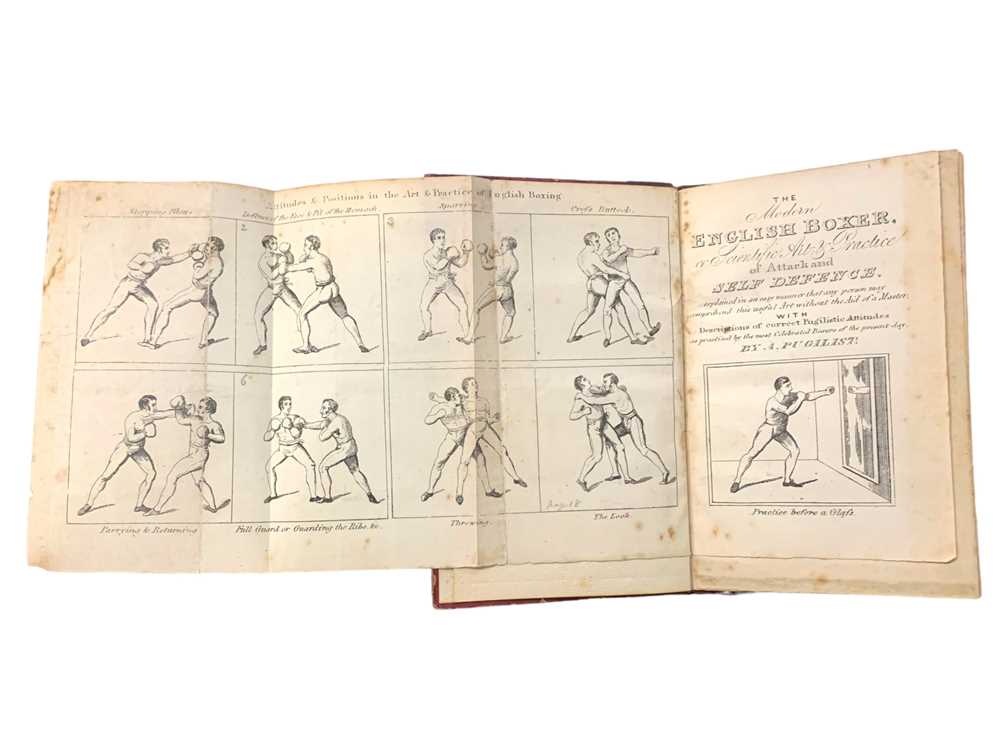 Attitudes & Positions in the Art & Practice of English Boxing
Stopping Blows
Defence of the Face & Pit of the Stomach
Sparring
Cross Buttock
2
3
6
Parrying & Returning
Full Guard or Guarding the Ribs, &c.
Throwing
The Lock
THE
Modern
ENGLISH BOXER.
or Scientific Art & Practice
of Attack and
SELF DEFENCE.
explained in an easy manner that any person may
comprehend this useful Art without the Aid of a Master;
WITH
Descriptions of correct Pugilistic Attitudes
as practised by the most Celebrated Boxers of the present day.
BY A PUGILIST!
Practice before a Glass.